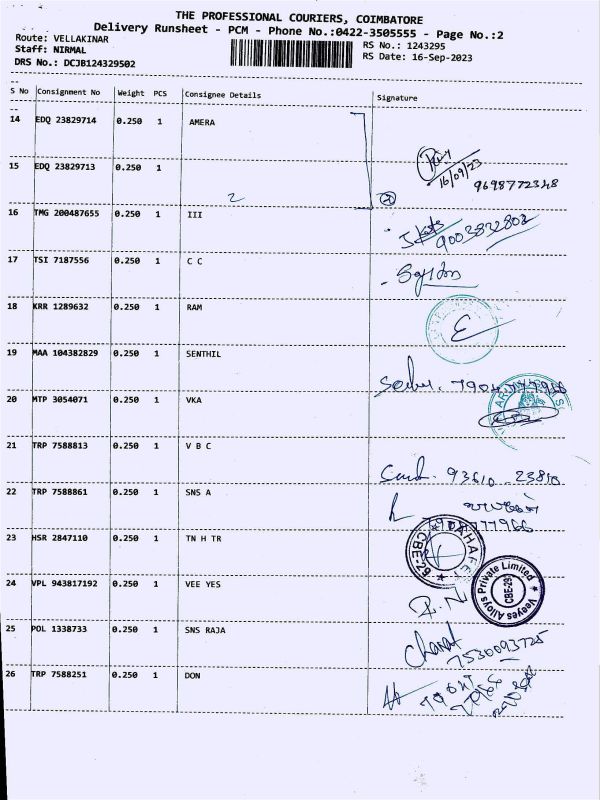 THE PROFESSIONAL COURIERS, COIMBATORE
Delivery Runsheet - PCM - Phone No.:0422-3505555 - Page No.:2
Route: VELLAKINAR
Staff: NIRMAL
DRS No.: DCJB124329502
RS No.: 1243295
RS Date: 16-Sep-2023
S No Consignment No Weight PCS Consignee Details Signature
14 EDQ 23829714 0.250 1 AMERA
15 EDQ 23829713 0.250 1
16/09/23
9698772348
2
16 TMG 200487655 0.250 1 III
9003832802
17 TSI 7187556 0.250 1 C C
18 KRR 1289632 0.250 1 RAM
19 MAA 104382829 0.250 1 SENTHIL
20 MTP 3054071 0.250 1 VKA
21 TRP 7588813 0.250 1 V B C
93610
22 TRP 7588861 0.250 1 SNS A
23 HSR 2847110 0.250 1 TN H TR
CBE-29
24 VPL 943817192 0.250 1 VEE YES
Veeyes Alloys Private Limited
CBE-29
25 POL 1338733 0.250 1 SNS RAJA
7530093725
26 TRP 7588251 0.250 1 DON